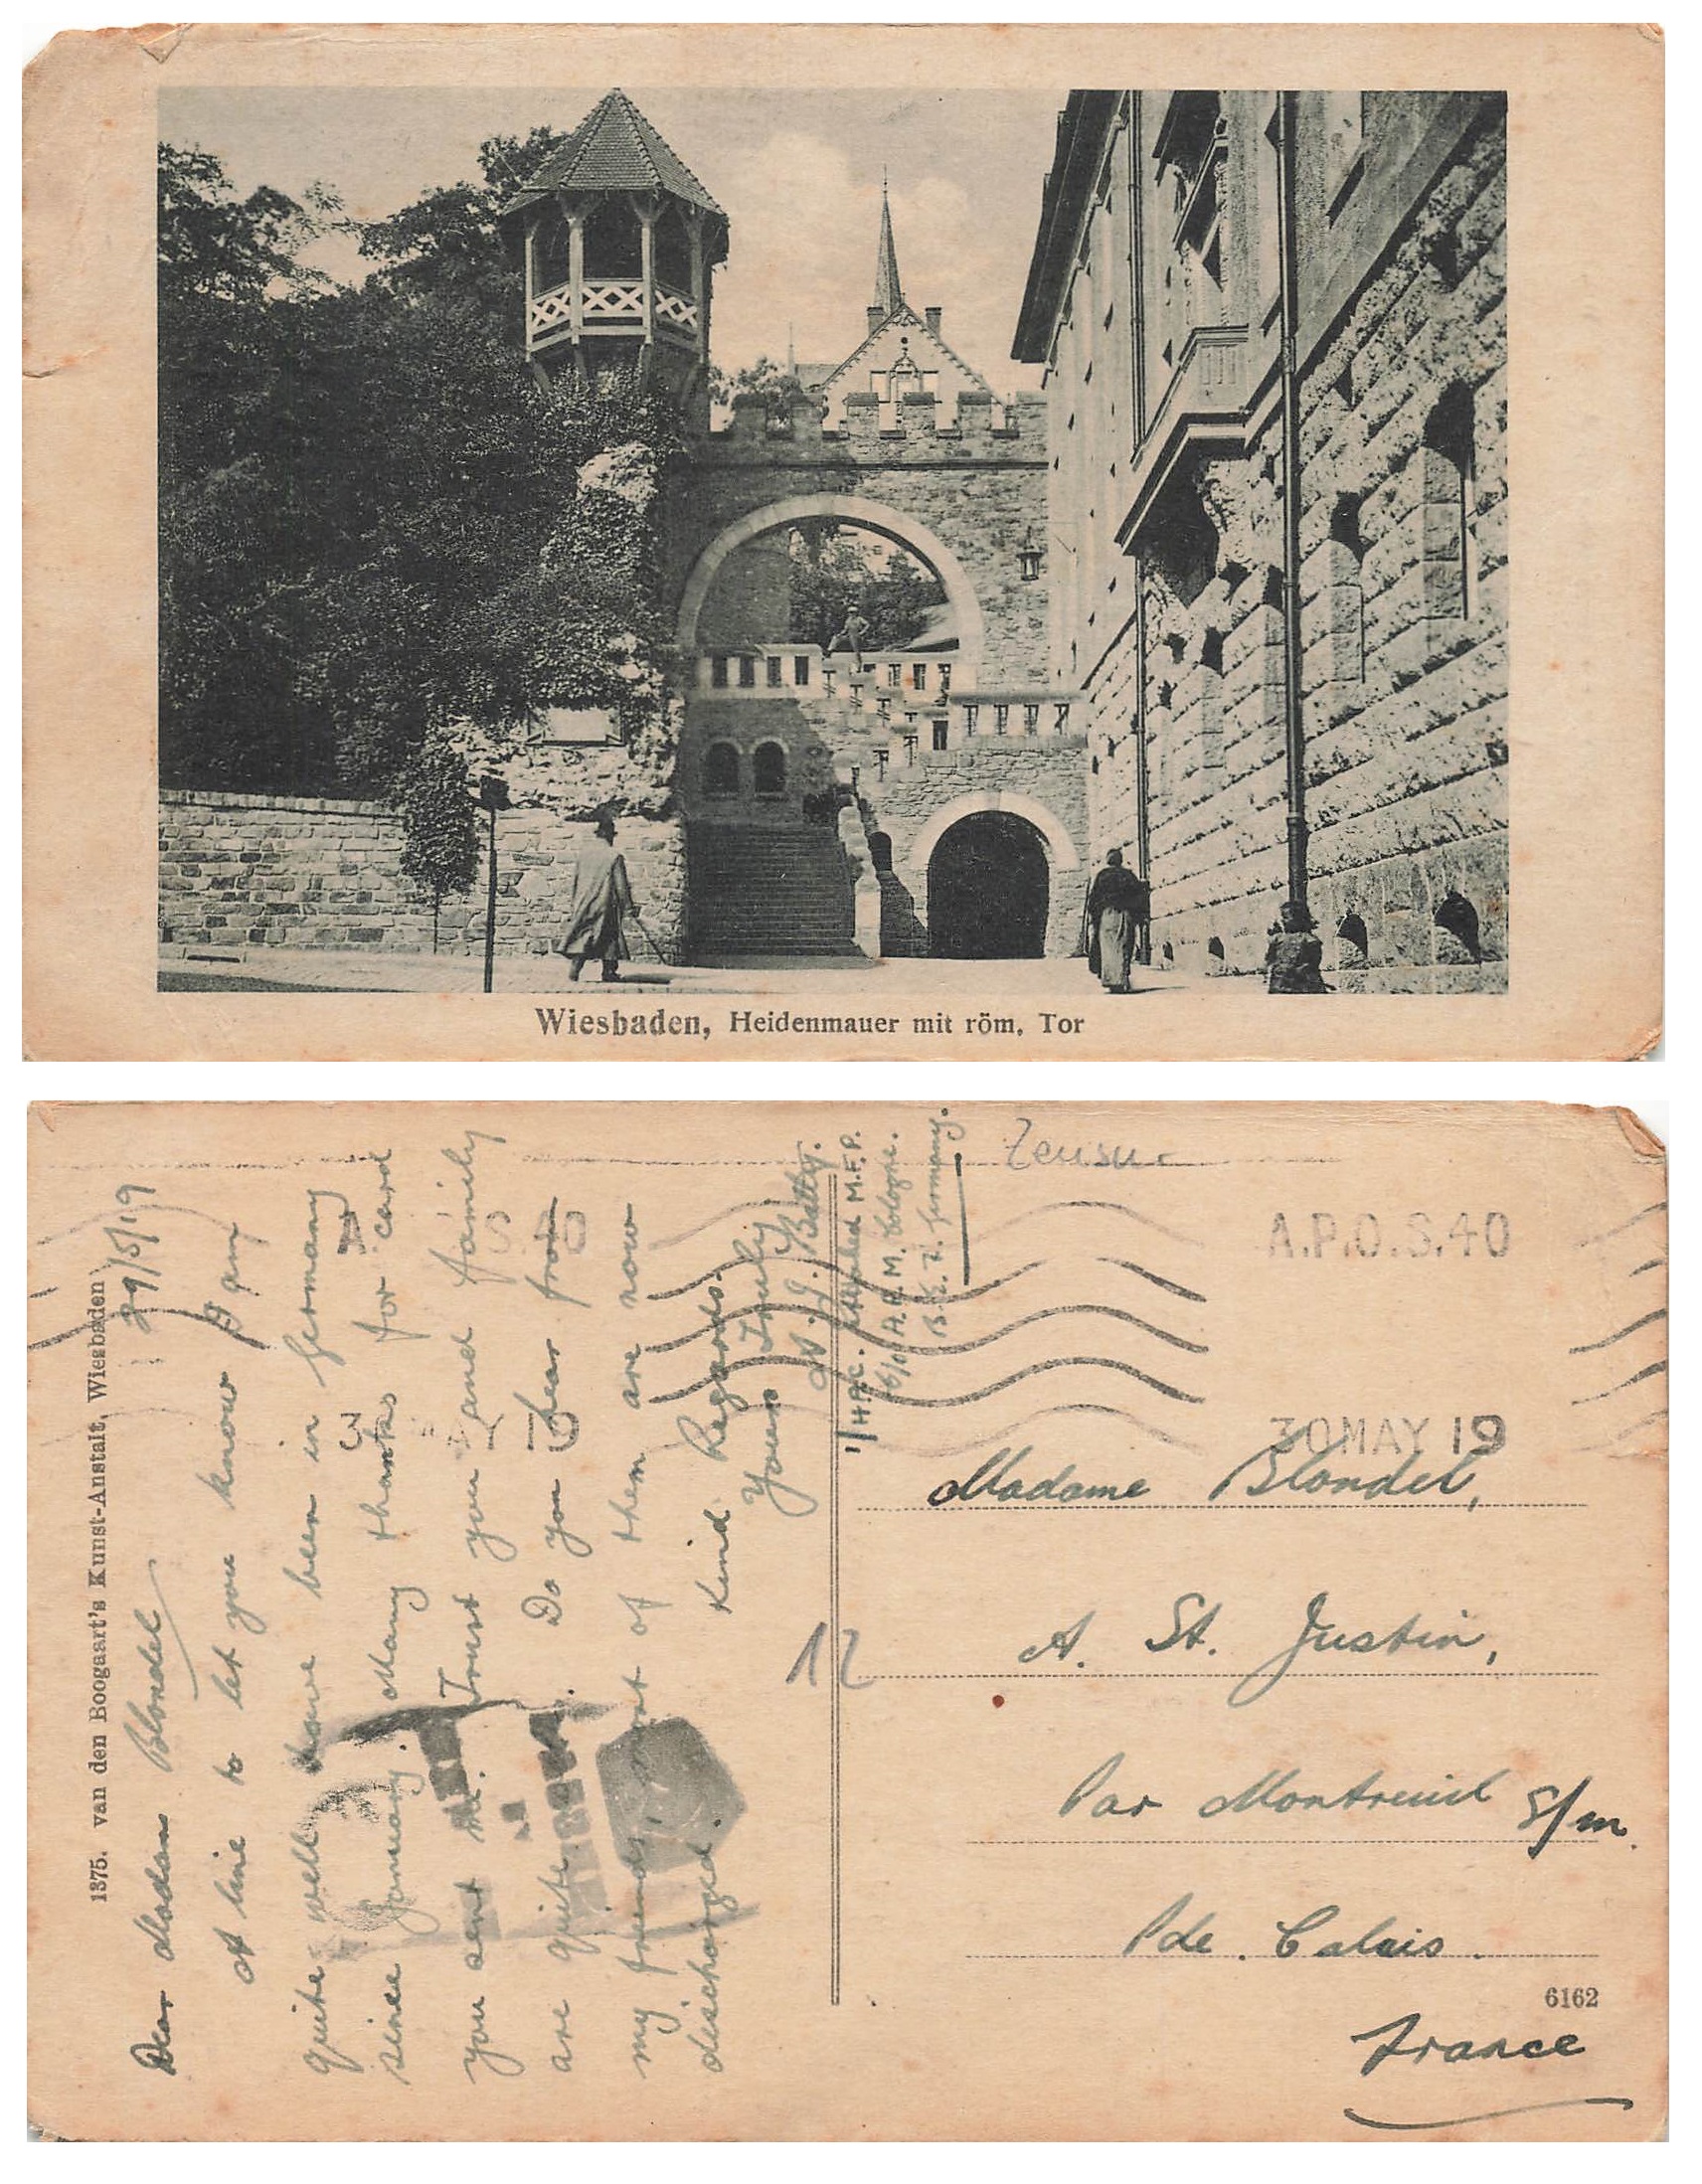 Wiesbaden, Heidenmauer mit röm. Tor
1375. van den Boogaart's Kunst-Anstalt, Wiesbaden
29/5/19
Dear Madam Blondel
A line to let you know I am
quite well have been in Germany
since January. Many thanks for card
you sent me. Trust you and family
are quite. Do you hear from
my friends, most of them are now
discharged.
Kind Regards.
Yours Truly
Batty.
1/H.A.C. Attached M.F.P.
c/o A.P.M. Cologne.
Germany.
Zensur
A.P.O.S.40
30MAY 19
12
Madame Blondel,
A. St. Justin,
Par Montreuil s/m.
P de. Calais.
6162
France